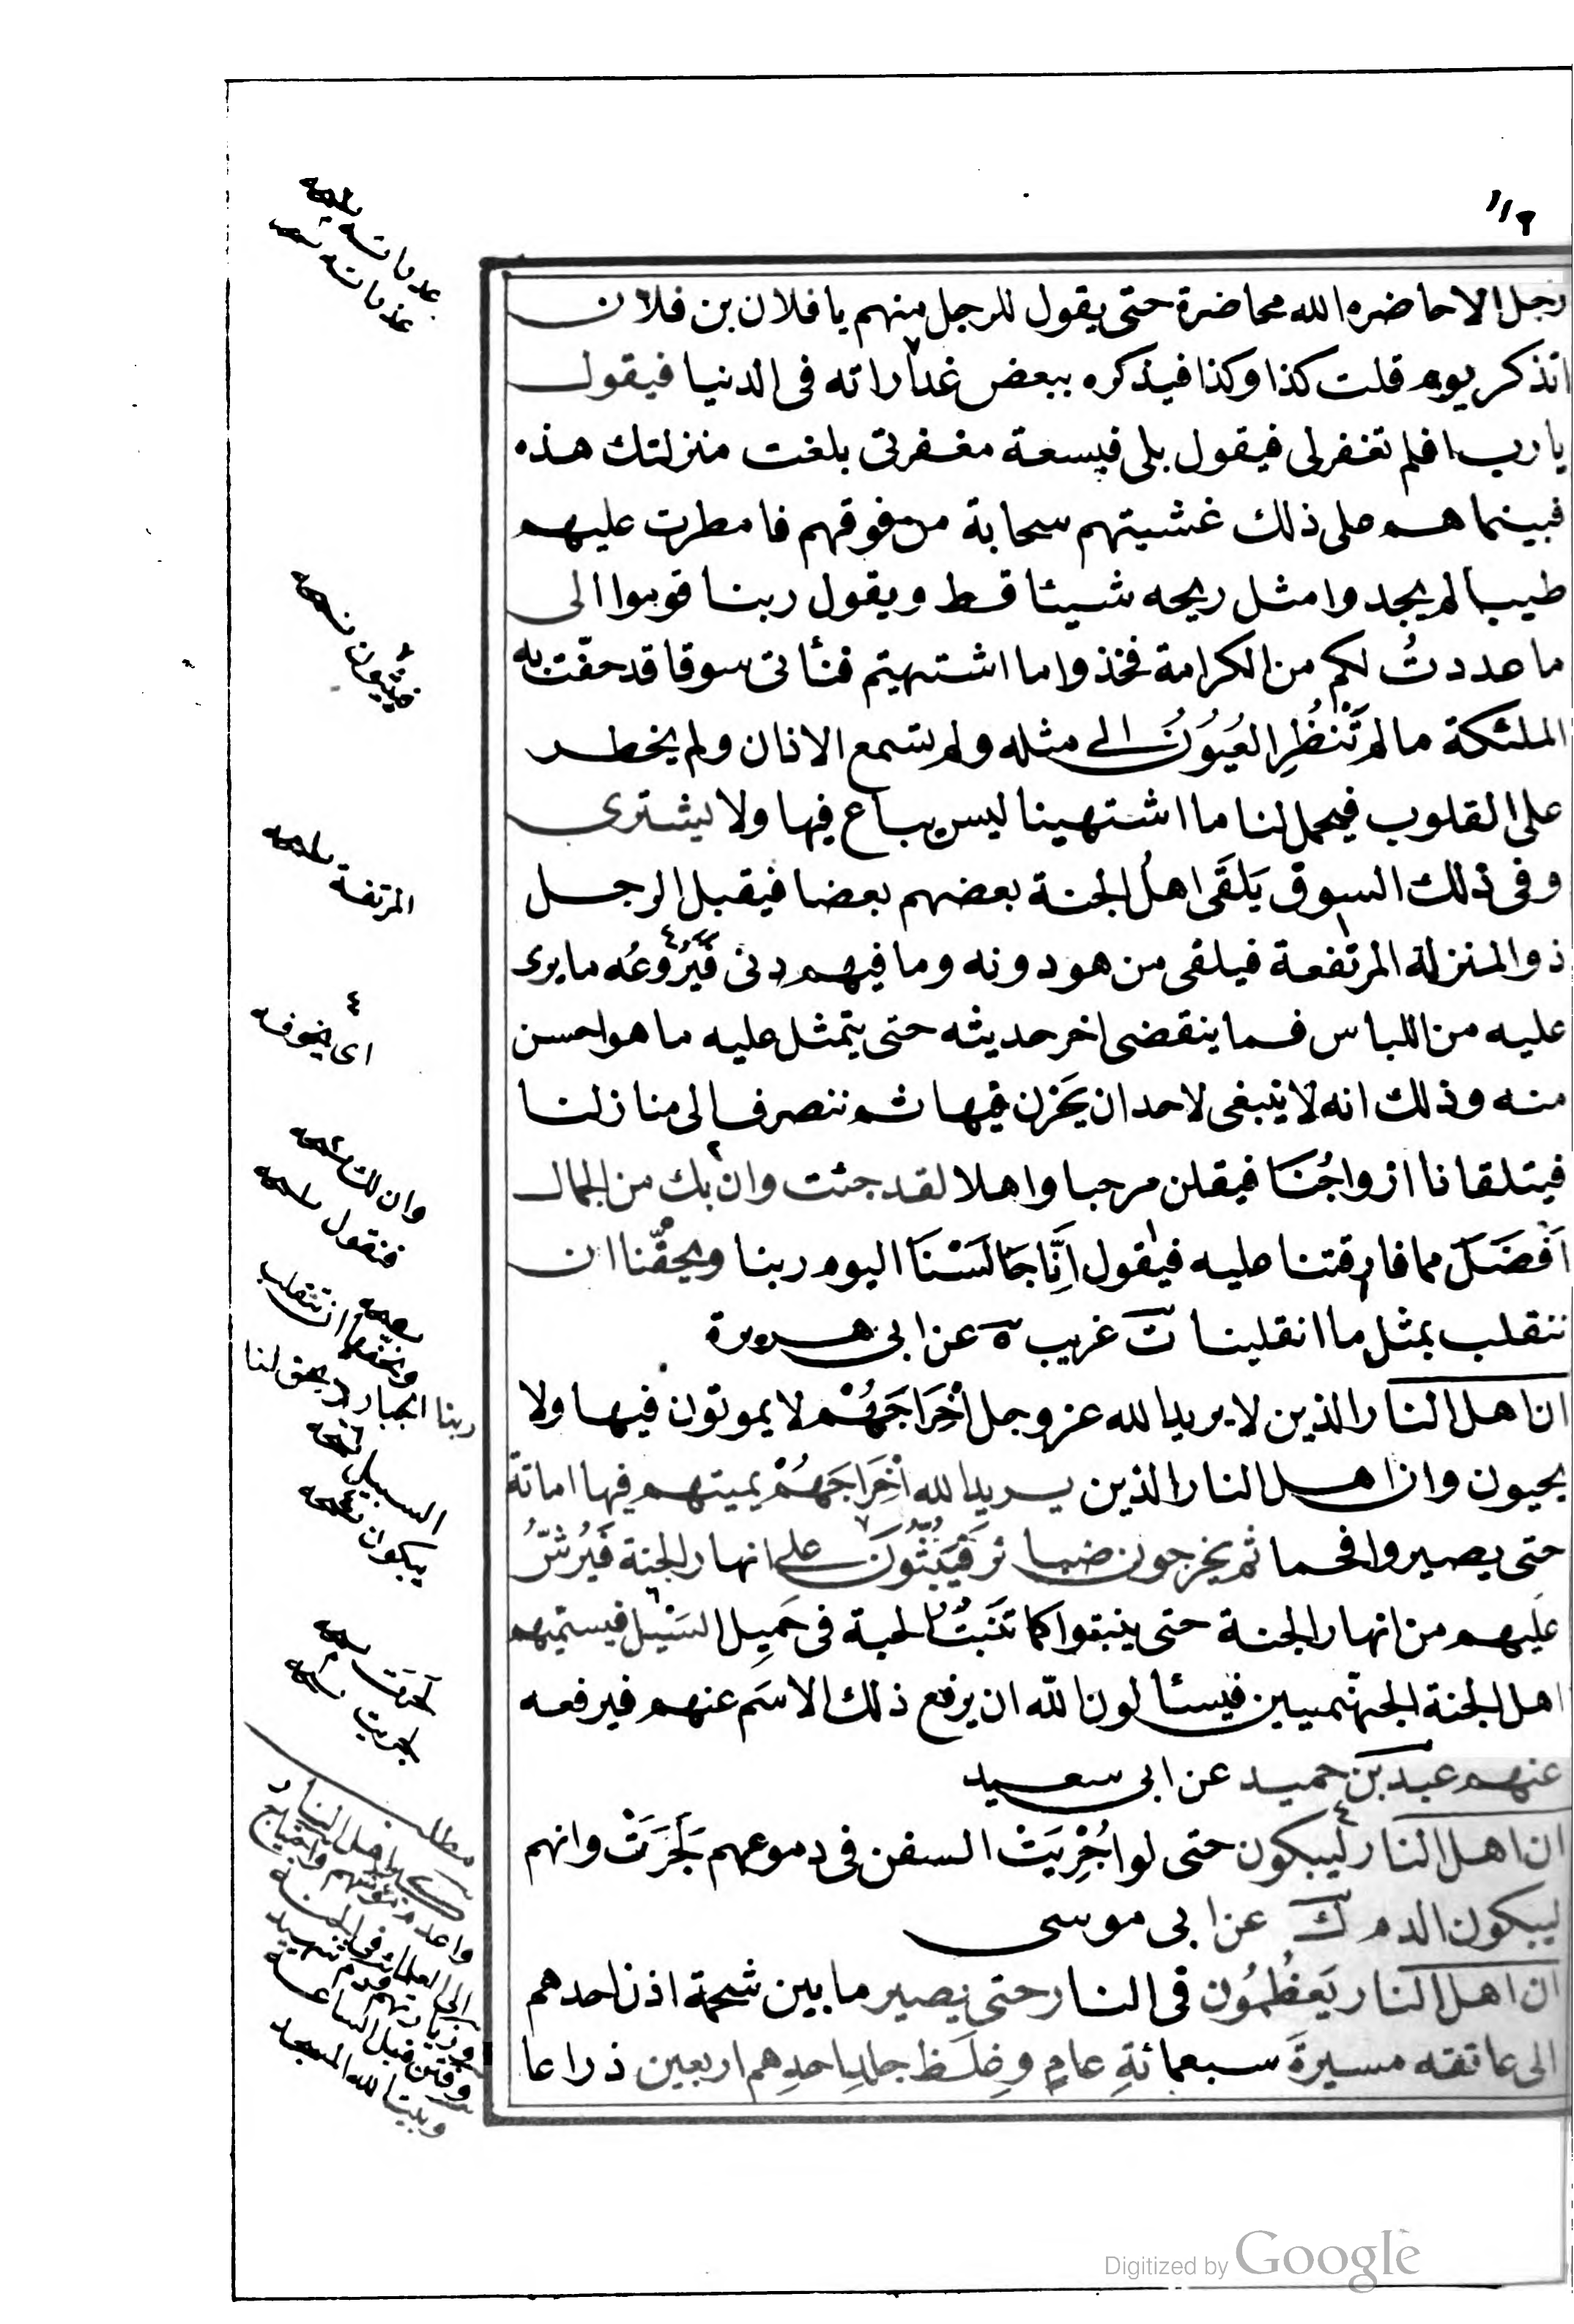 ١١٩
رجل الا حاضره الله محاضرة حتى يقول للرجل منهم يا فلان بن فلان
اتذكر يوم قلت كذا وكذا فيذكره ببعض غداراته فى الدنيا فيقول
يا رب افلم تغفر لى فيقول بلى فبسعة مغفرتى بلغت منزلتك هذه
فبينما هم على ذلك غشيتهم سحابة من فوقهم فامطرت عليهم
طيبا لم يجدوا مثل ريحه شيئا قط ويقول ربنا قوموا الى
ما عددتُ لكم من الكرامة فخذوا ما اشتهيتم فنأتى سوقا قد حفّت به
الملئكة ما لم تَنْظُرِ العُيُونُ الى مثله ولم تسمع الاذان ولم يخطر
على القلوب فيحمل لنا ما اشتهينا ليس يباع فيها ولا يشترى
وفى ذلك السوق يَلقَى اهلُ الجنة بعضهم بعضا فيقبل الرجل
ذو المنزلة المرتفعة فيلقى من هو دونه وما فيهم دنى فَيَرُوعُه ما يرى
عليه من اللباس فما ينقضى اخر حديثه حتى يتمثل عليه ما هو احسن
منه وذلك انه لا ينبغى لاحد ان يَحزن فيها ثم ننصرف الى منازلنا
فيتلقانا ازواجُنَا فيقلن مرحبا واهلا لقد جئت وان بك من الجمال
اَفْضَلَ مما فارقتنا عليه فيقول اِنَّا جَالَسْنَا اليوم ربنا ويحقّنا ان
ننقلب بمثل ما انقلبنا ت غريب ه عن ابى هريرة
ان اهل النار الذين لا يريد الله عز وجل اخْرَاجَهُمْ لا يموتون فيها ولا
يحيون وان اهل النار الذين يريد الله اخْرَاجَهُمْ يميتهم فيها اماتة
حتى يصيروا فحما ثم يخرجون ضبائر فَيُبَثُّونَ على انهار الجنة فَيُرَشُّ
عليهم من انهار الجنة حتى ينبتوا كما تَنْبُتُ الحبة فى حَمِيلِ السَّيْل فيسميهم
اهل الجنة الجهنميين فيسئالون الله ان يرفع ذلك الاسم عنهم فيرفعه
عنهم عبد بن حميد عن ابى سعيد
ان اهل النار ليبكون حتى لو اُجْرِيَتْ السفن فى دموعهم لَجَرَتْ وانهم
ليبكون الدم ك عن ابى موسى
ان اهل النار يَعظُمُون فى النار حتى يصير ما بين شحمة اذن احدهم
الى عاتقه مسيرةَ سبعمائةِ عامٍ وغِلَظ جلدِ احدِهم اربعين ذراعا
المرتفة
اى يخوفه
وان لك
فنقول
ربنا الجبار
السبيل
يبكون
لجرت
مطلب
Digitized by Google